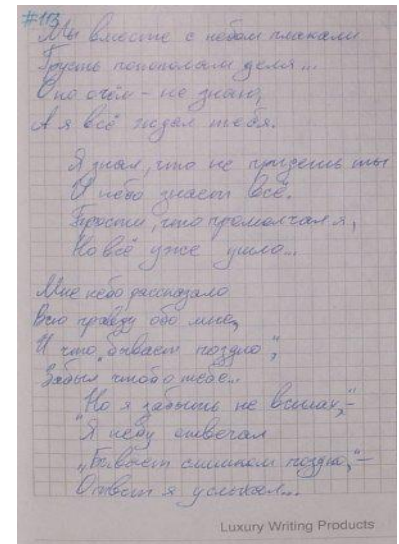 #113
Мы вместе с небом плакали
Грусть пополам деля...
Оно о чём - не знаю,
А я всё ждал тебя.
Я знал, что не придёшь ты
И небо знает всё.
Прости, что промолчал я,
Но всё уже ушло...
Мне небо рассказало
Всю правду обо мне,
И что „бывает поздно",
Забыл чтоб о тебе...
„Но я забыть не в силах," -
Я небу отвечал
„Бывает слишком поздно," -
Ответ я услыхал...
Luxury Writing Products